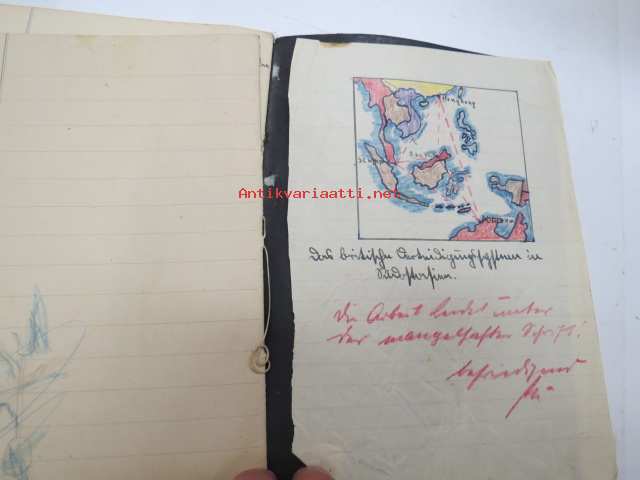 Hongkong
Antikvariaatti.net
Das britische Verteidigungssystem in
Südostasien.
Die Arbeit leidet unter
der mangelhaften Schrift!
befriedigend